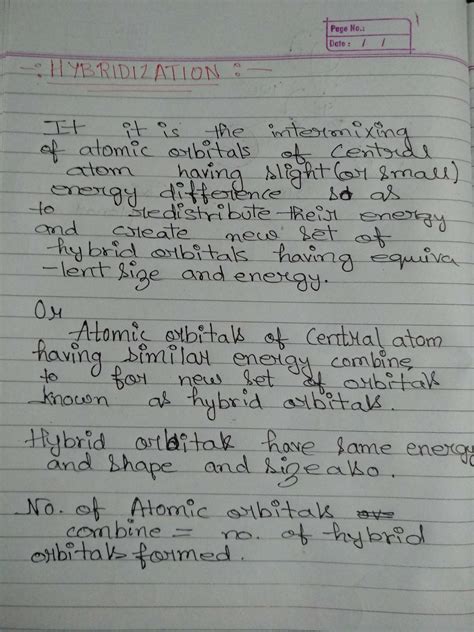 Page No.:
Date : / /
-: HYBRIDIZATION :-
It it is the intermixing
of atomic orbitals of Central
atom having slight (or small)
energy difference so as
to redistribute their energy
and create new set of
hybrid orbitals having equiva
-lent size and energy.
Or
Atomic orbitals of Central atom
having similar energy combine
to for new set of orbitals
known as hybrid orbitals.
Hybrid orbitals have same energy
and shape and size also.
No. of Atomic orbitals
combine = no. of hybrid
orbitals formed.